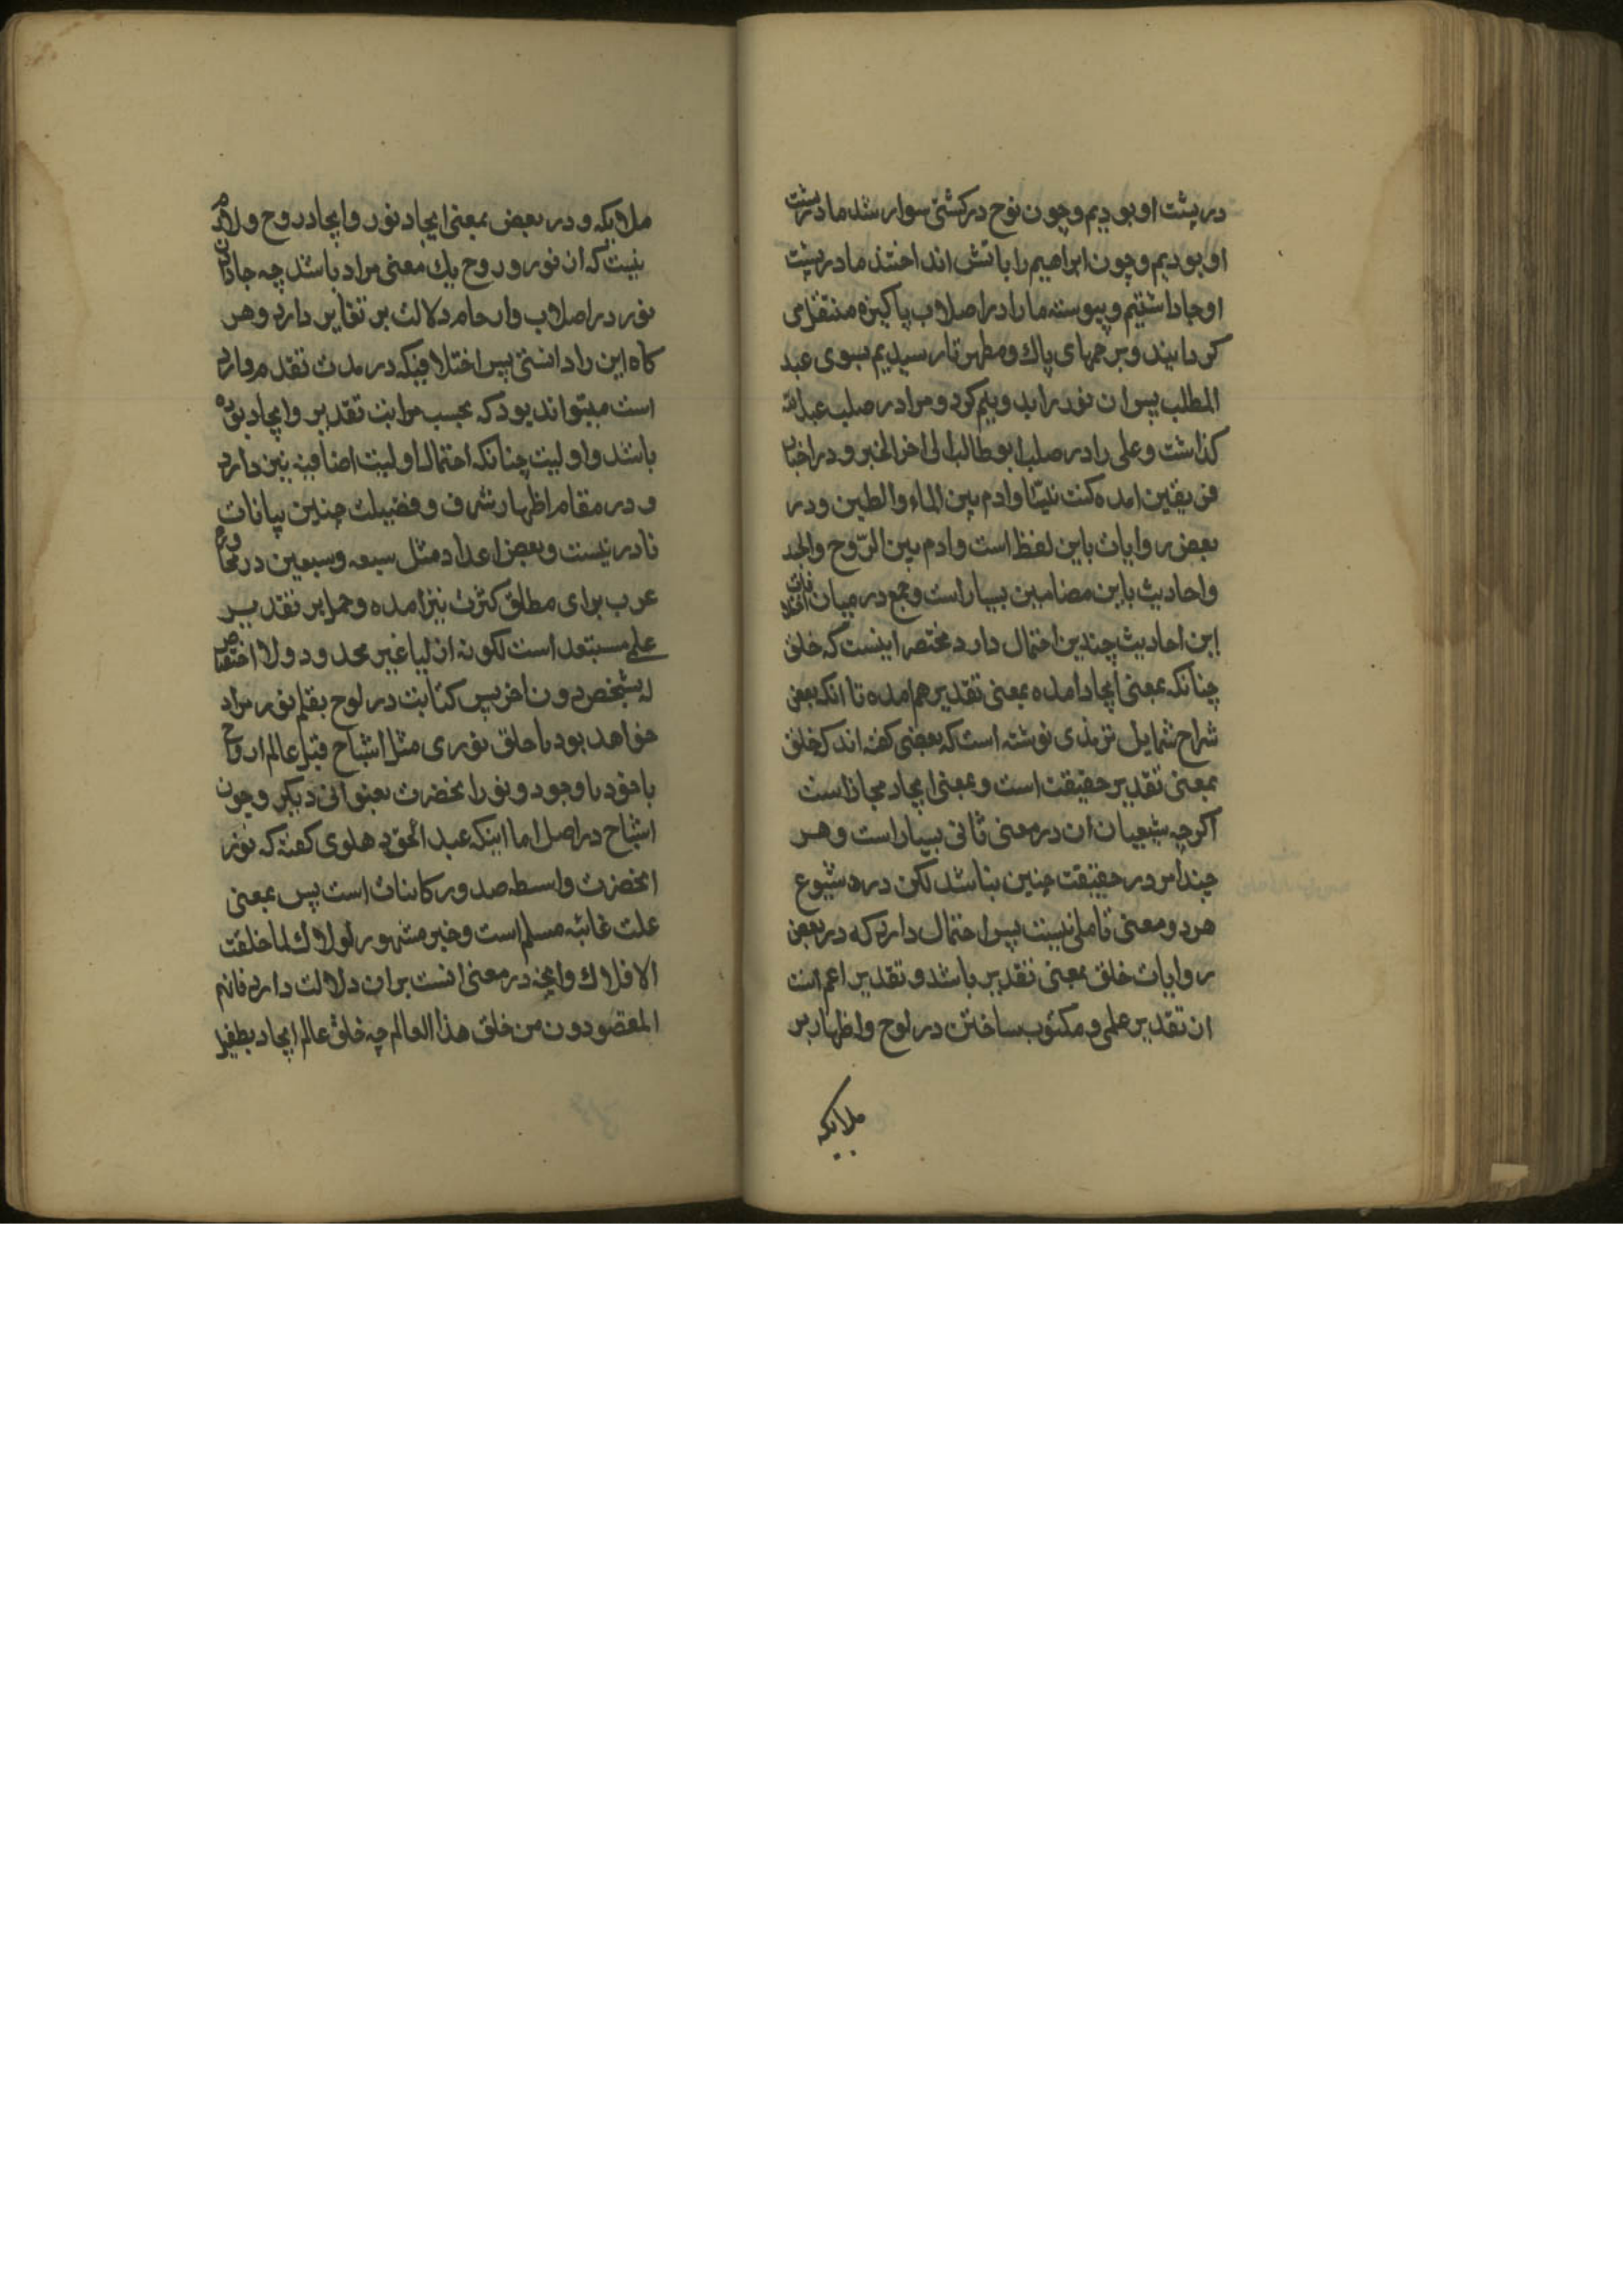 در پشت او بودیم و چون نوح در کشتی سوار شد ما در پشت
او بودیم و چون ابراهیم را باتش انداختند ما در پشت
او جا داشتیم و پیوسته ما را در اصلاب پاکیزه منتقل می
کردانیدند و برحمهای پاک و مطهر تا رسیدیم بسوی عبد
المطلب پس ان نور را بدو نیم کرد و مرا در صلب عبدالله
کذاشت و علی را در صلب ابوطالب الی اخر الخبر و در اخبار
فریقین امده کنت نبیّا و ادم بین الماء والطین و در
بعض روایات باین لفظ است و ادم بین الرّوح والجسد
و احادیث باین مضامین بسیار است و جمع در میان
این احادیث چندین احتمال دارد مختصر اینست که خلق
چنانکه بمعنی ایجاد امده بمعنی تقدیر هم امده تا انکه بعض
شراح شمایل ترمذی نوشته است که بعضی کفته اند که خلق
بمعنی تقدیر حقیقت است و بمعنی ایجاد مجاز است
اکرچه شیعیان ان در معنی ثانی بسیار است و هر
چند امر در حقیقت چنین نباشد لکن در شیوع
هر دو معنی تاملی نیست پس احتمال دارد که در بعض
روایات خلق بمعنی تقدیر باشد و تقدیر اعم است
از تقدیر علمی و مکتوب ساختن در لوح و اظهار بر
ملایکه
ملایکه و در بعض بمعنی ایجاد نور و ایجاد روح و لازم
نیست که از نور و روح یک معنی مراد باشد چه جا دادن
نور در اصلاب و ارحام دلالت بر تغایر دارد و هر
کاه این را دانستی پس اختلافیکه در مدت تقدم وارد
است میتواند بود که بحسب مراتب تقدیر و ایجاد بوده
باشد و اولیت چنانکه احتمال اولیت اضافیه نیز دارد
و در مقام اظهار شرف و فضیلت چنین بیانات
نادر نیست و بعض اعداد مثل سبعه و سبعین در محاوره
عرب برای مطلق کثرت نیز امده و حمل بر تقدیر
علمی مستبعد است لکونه ازلیا غیر محدود و لا اختصاص
له بشخص دون اخر پس کتابت در لوح بقلم نور مراد
خواهد بود یا خلق نوری مثل اشباح قبل عالم ارواح
یا خود با وجود و نور انحضرت بعنوانی دیکر و چون
اشباح در اصل اما اینکه عبد الحق دهلوی کفته که نور
انحضرت واسطه صدور کاینات است پس بمعنی
علت غائیه مسلم است و خبر مشهور لولاک لما خلقت
الافلاک وانچه در معنی انست بران دلالت دارد فانهم
المقصودون من خلق هذا العالم چه خلق عالم ایجاد بطفیل